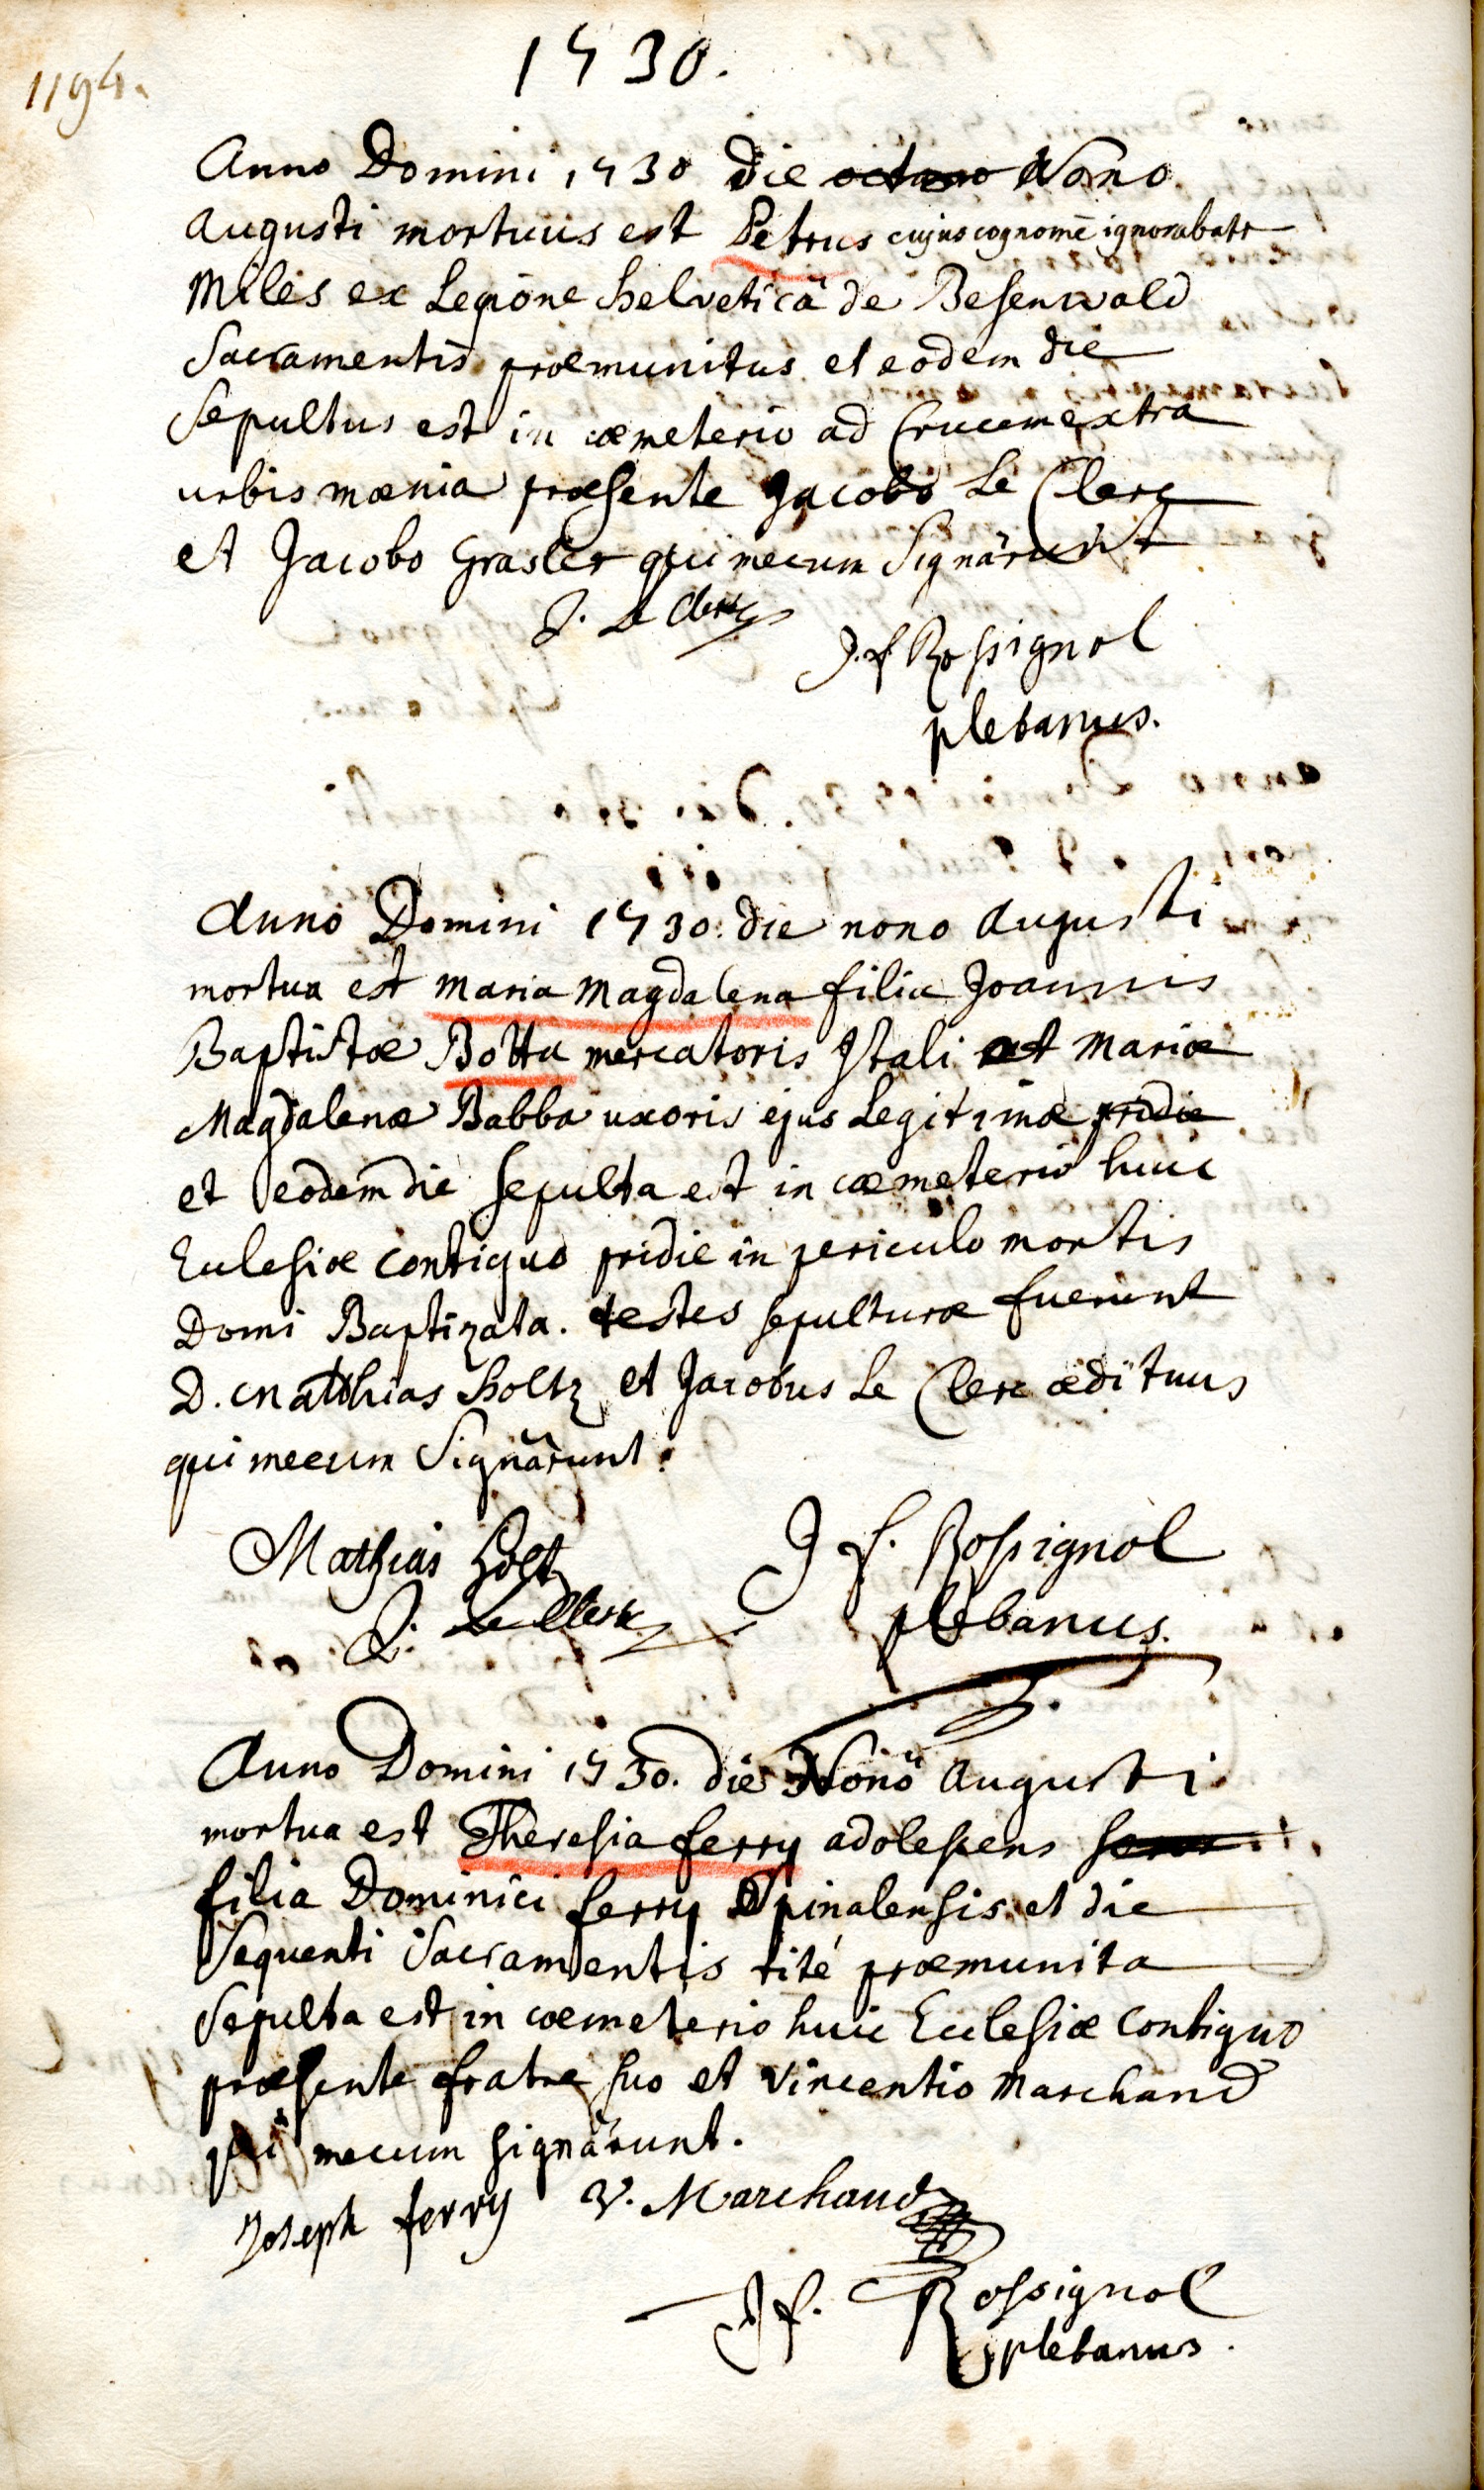 1194.
1730.
Anno Domini 1730 die octavo Nono
Augusti mortuus est Petrus cujus cognomē ignorabatr
Miles ex Legione helveticâ de Besenwald
Sacramentis præmunitus et eodem die
Sepultus est in cœmeterio ad Crucem extra
urbis mœnia præsente Jacobo Le Clerc
et Jacobo Grasler qui mecum Signârunt
J. Le Clerc
J. f Rossignol
plebanus.
Anno Domini 1730. die nono Augusti
mortua est Maria Magdalena filia Joannis
Baptistæ Botta mercatoris Itali et Mariæ
Magdalenæ Babba uxoris ejus Legitimæ pridie
et eodem die sepulta est in cœmeterio huic
Ecclesiæ contiguo pridie in periculo mortis
Domi Baptizata. testes sepulturæ fuerunt
D. Matthias holtz et Jacobus Le Clerc ædituus
qui mecum Signârunt.
Mathias Holtz
J f. Rossignol
J. Le Clerc
plebanus.
Anno Domini 1730. die Nonô Augusti
mortua est Theresia ferry adolescens soror
filia Dominici ferry Spinalensis et die
Sequenti Sacramentis rité præmunita
Sepulta est in cœmeterio huic Ecclesiæ Contiguo
præsente fratre suo et Vincentio Marchand
qui mecum signârunt.
Joseph ferry V. Marchand
J f. Rossignol
plebanus.